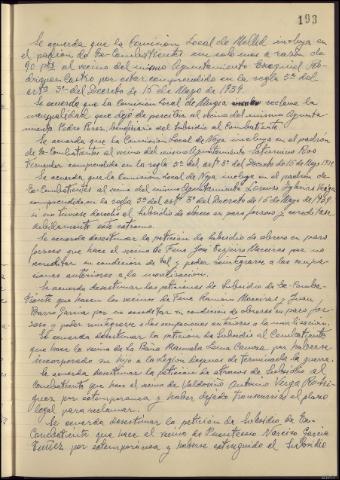 193
Se acuerda que la Comisión Local de Mellid incluya en
el padrón de Ex-Combatientes un solo mes a razón de
90 pts al vecino del mismo Ayuntamiento Ezequiel Ro-
driguez Castro por estar comprendido en la regla 5ª del
artº 3º del Decreto de 16 de Mayo de 1939.
Se acuerda que la Comisión Local de Mugia reclame la
mensualidad que dejó de percibir al vecino del mismo Ayunta-
miento Pedro Perez, beneficiario del Subsidio al Combatiente.
Se acuerda que la Comisión Local de Noya incluya en el padrón
de Ex-Combatientes al vecino del mismo Ayuntamiento Saturnino Rios
Fernandez comprendido en la regla 5ª del artº 3º del Decreto de 16 de Mayo 1939.
Se acuerda que la Comisión Local de Noya incluya en el padrón de
Ex-Combatientes al vecino del mismo Ayuntamiento
comprendido en la regla 5ª del artº 3º del Decreto de 16 de Mayo de 1939
si no tuviese derecho al Subsidio de obrero en paro forzoso
debidamente este extremo.
Se acuerda desestimar la petición de Subsidio de obrero en paro
forzoso que hace el vecino de Fene José Pereira Maceiras por no
acreditar su condición de tal y poder reintegrarse a las ocupa-
ciones anteriores a la movilización.
Se acuerda desestimar las peticiones de Subsidio de Ex-Comba-
tiente que hacen los vecinos de Fene Ramón Maceiras y Juan
Garcia por no acreditar su condición de obreros en paro for-
zoso y poder reintegrarse a las ocupaciones anteriores a la movilización.
Se acuerda desestimar la petición de Subsidio al Combatiente
que hace la vecina de Manuela por haberse
incorporado su hijo a la Legión despues de terminada la guerra.
Se acuerda desestimar la petición de atrasos de Subsidio al
Combatiente que hace el vecino de Valdoviño Antonio Verga Rodri-
guez por extemporanea y haber dejado transcurrir el plazo
legal para reclamar.
Se acuerda desestimar la petición de Subsidio de Ex-
Combatiente que hace el vecino de Puenteceso Narciso Garcia
por extemporánea y haberse extinguido el Subsidio